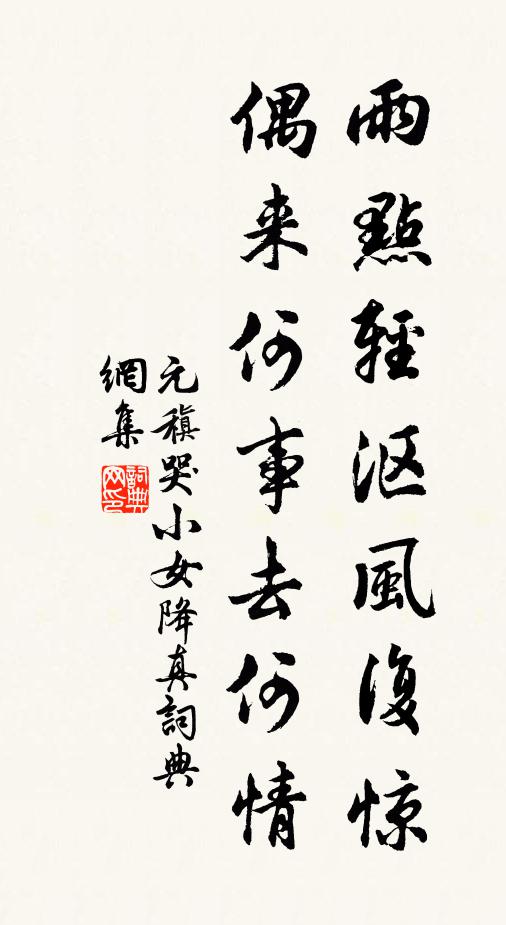 雨點輕沤風復惊
偶来何事去何情
元稹哭小女降真詞典
網集
詞典网印